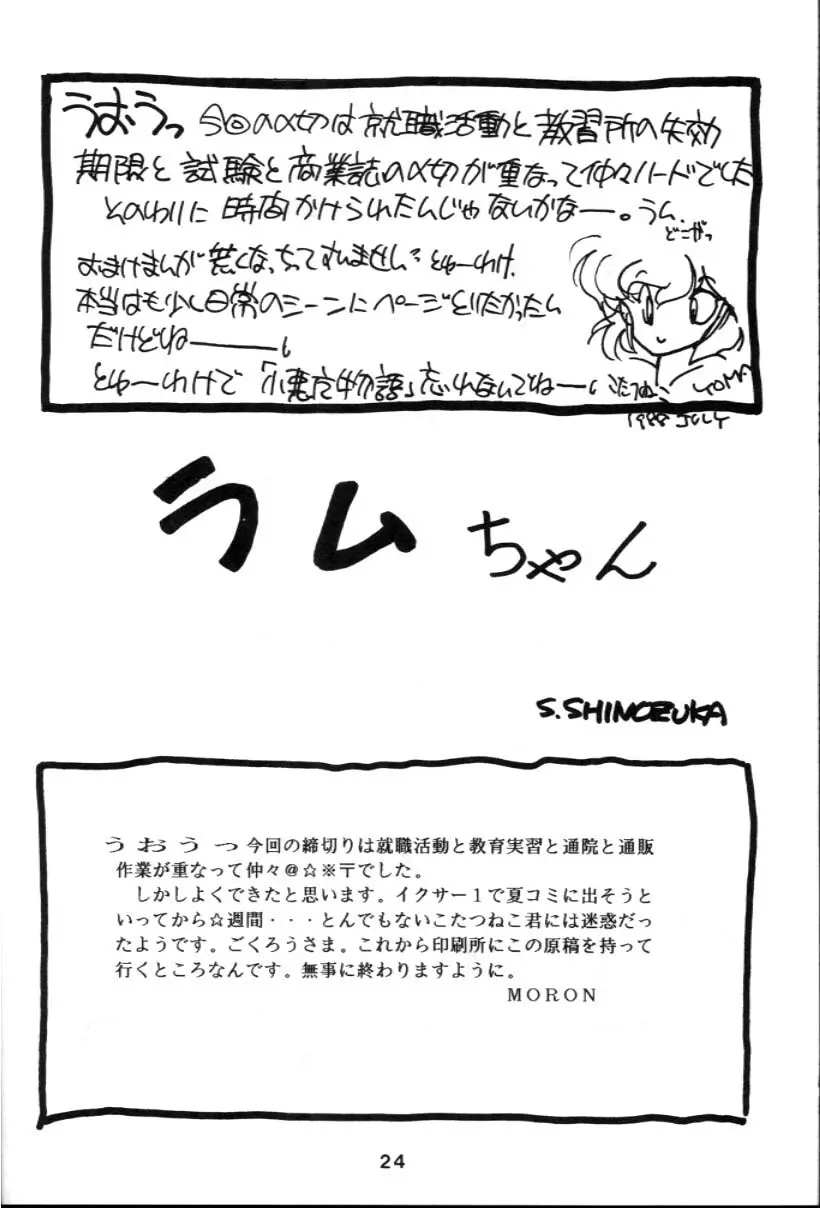 うおうっ 今回の〆切は就職活動と教習所の失効
期限と試験と商業誌の〆切が重なって仲々ハードでした
そのわりに時間かけられたんじゃないかなー。うん.
どこがっ
おまけまんが荒くなっちってすいません。とゆーわけ.
本当はも少し日常のシーンにページとりたかったん
だけどねー
とゆーわけで「小悪魔物語」忘れないでねー
こたつねこ
1988 JULY
ラムちゃん
S.SHINOZUKA
うおうっ今回の締切りは就職活動と教育実習と通院と通販
作業が重なって仲々@☆※〒でした。
しかしよくできたと思います。イクサー1で夏コミに出そうと
いってから☆週間・・・とんでもないこたつねこ君には迷惑だっ
たようです。ごくろうさま。これから印刷所にこの原稿を持って
行くところなんです。無事に終わりますように。
MORON
24